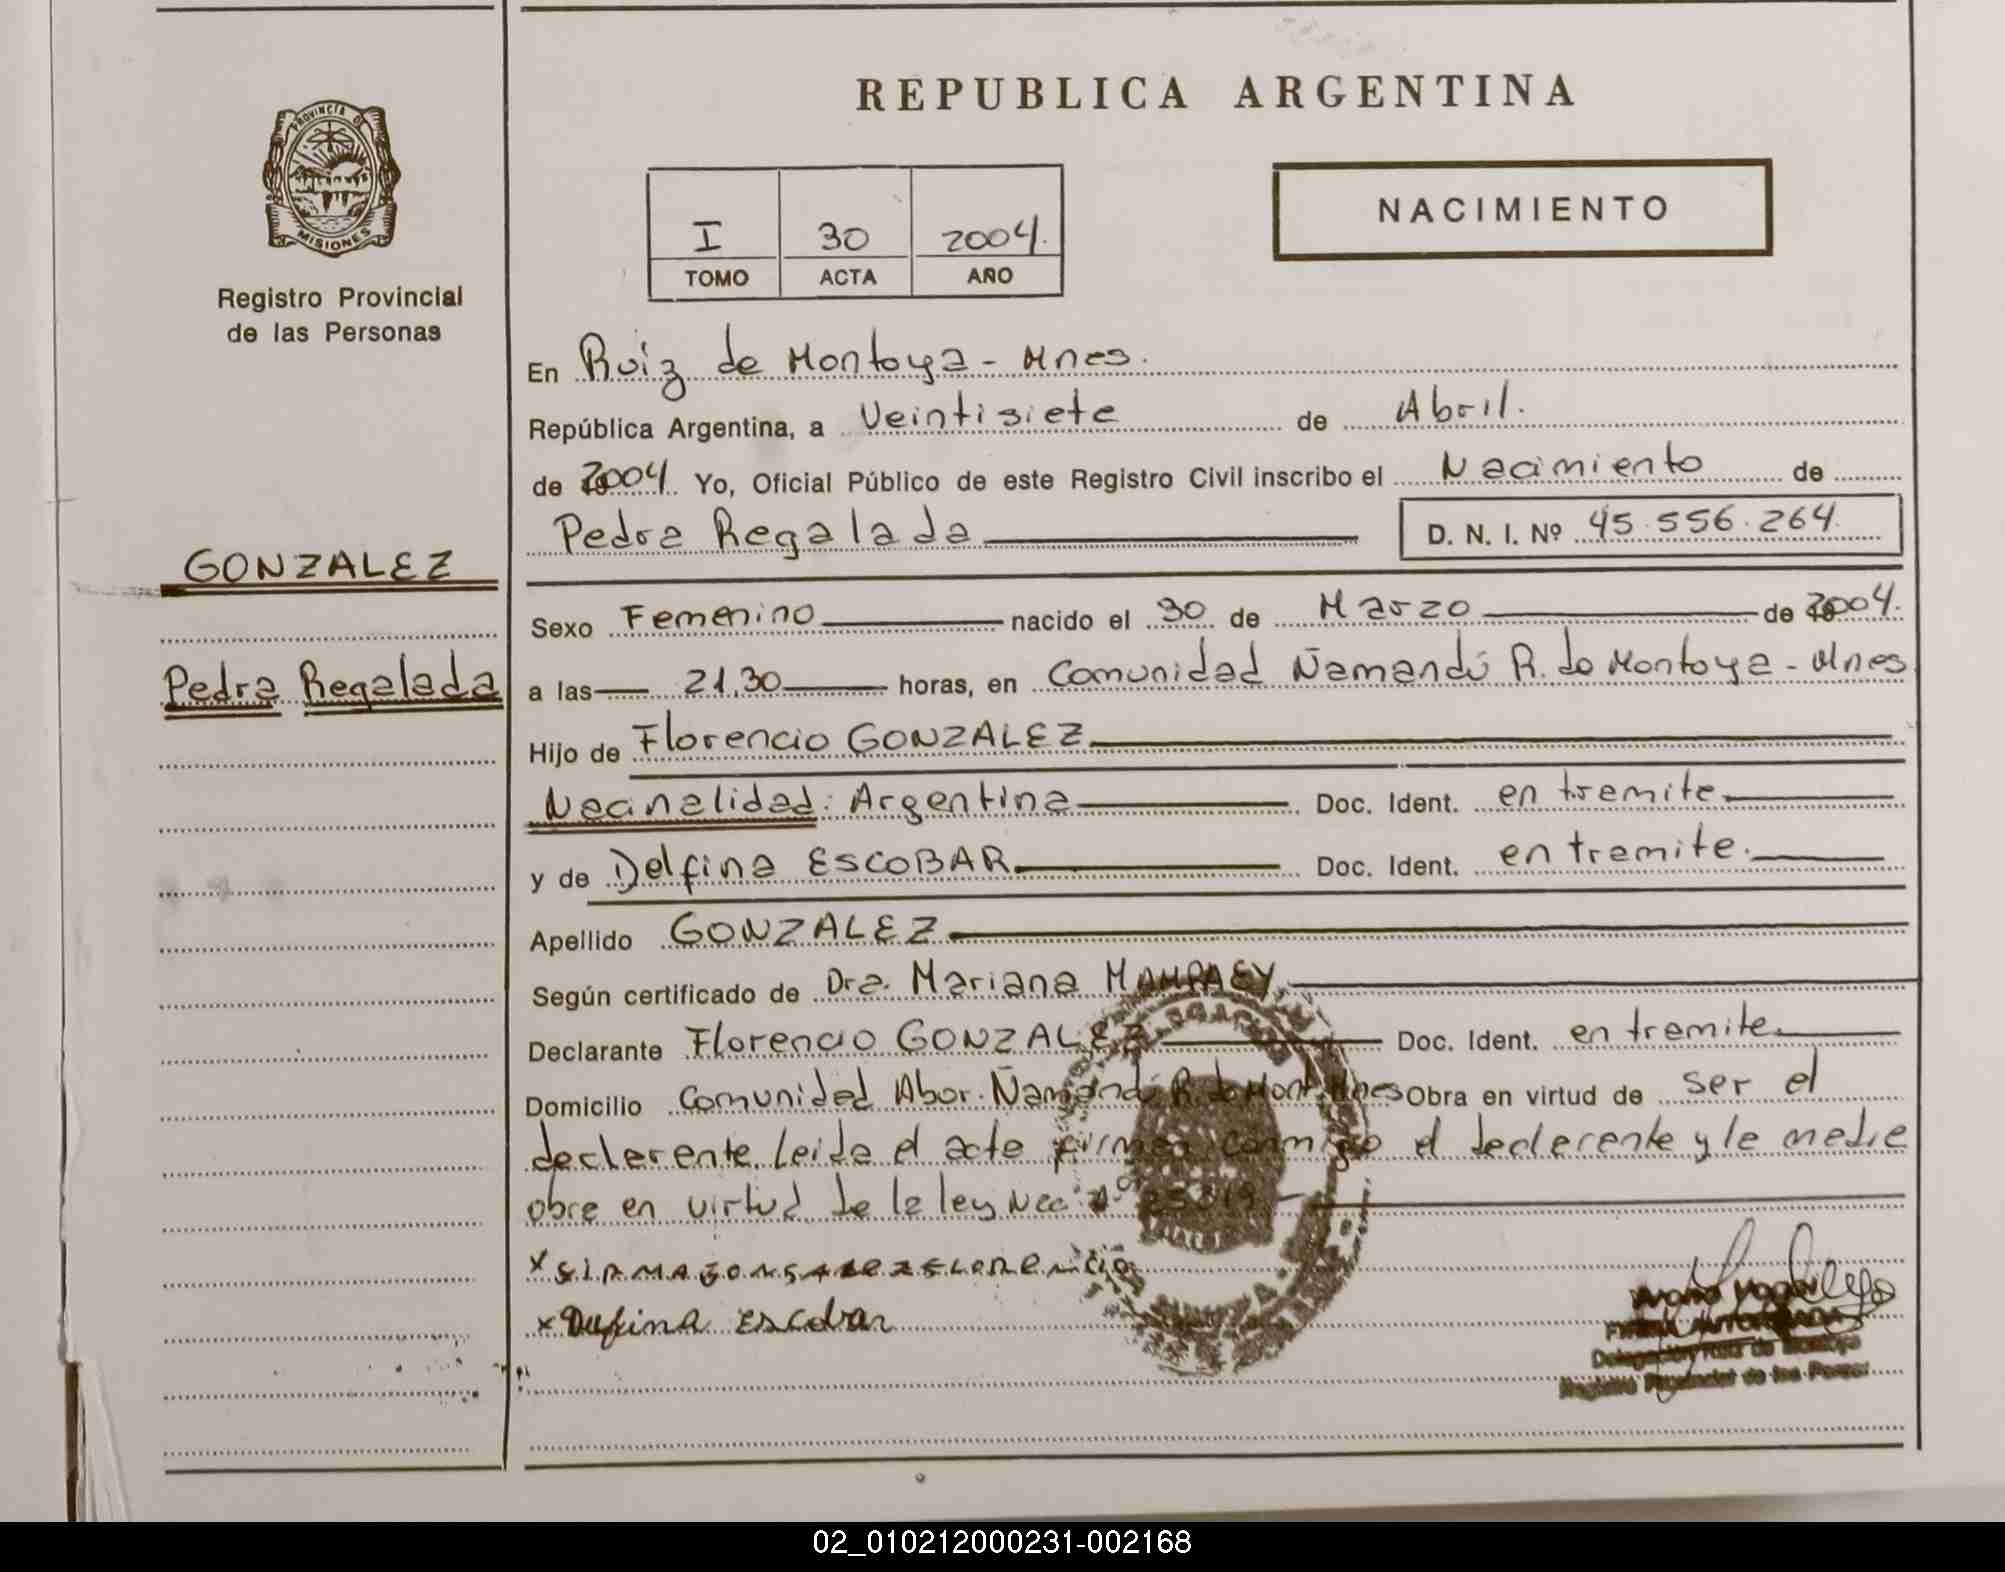 REPUBLICA ARGENTINA
PROVINCIA DE
MISIONES
Registro Provincial
de las Personas
I 30 2004.
TOMO ACTA AÑO
NACIMIENTO
GONZALEZ
Pedra Regalada
En Ruiz de Montoya - Mnes.
República Argentina, a Veintisiete de Abril.
de 2004. Yo, Oficial Público de este Registro Civil inscribo el Nacimiento de
Pedra Regalada D. N. I. Nº 45.556.264.
Sexo Femenino nacido el 30 de Marzo de 2004.
a las 21,30 horas, en Comunidad Ñamandú R. de Montoya - Mnes
Hijo de Florencio GONZALEZ
Nacinalidad: Argentina Doc. Ident. en tramite
y de Delfina ESCOBAR Doc. Ident. en tramite.
Apellido GONZALEZ
Según certificado de Dra. Mariana MAMPAEY
Declarante Florencio GONZALEZ Doc. Ident. en tramite
Domicilio Comunidad Abor. Ñamandú R. de Mont. Mnes Obra en virtud de ser el
declarante. Leida el acta firman conmigo el declarante y la madre
obra en virtud de la ley Nac Nº
x
x Delfina Escobar
Delegación Ruiz de Montoya
Registro Provincial de las Person
02_010212000231-002168